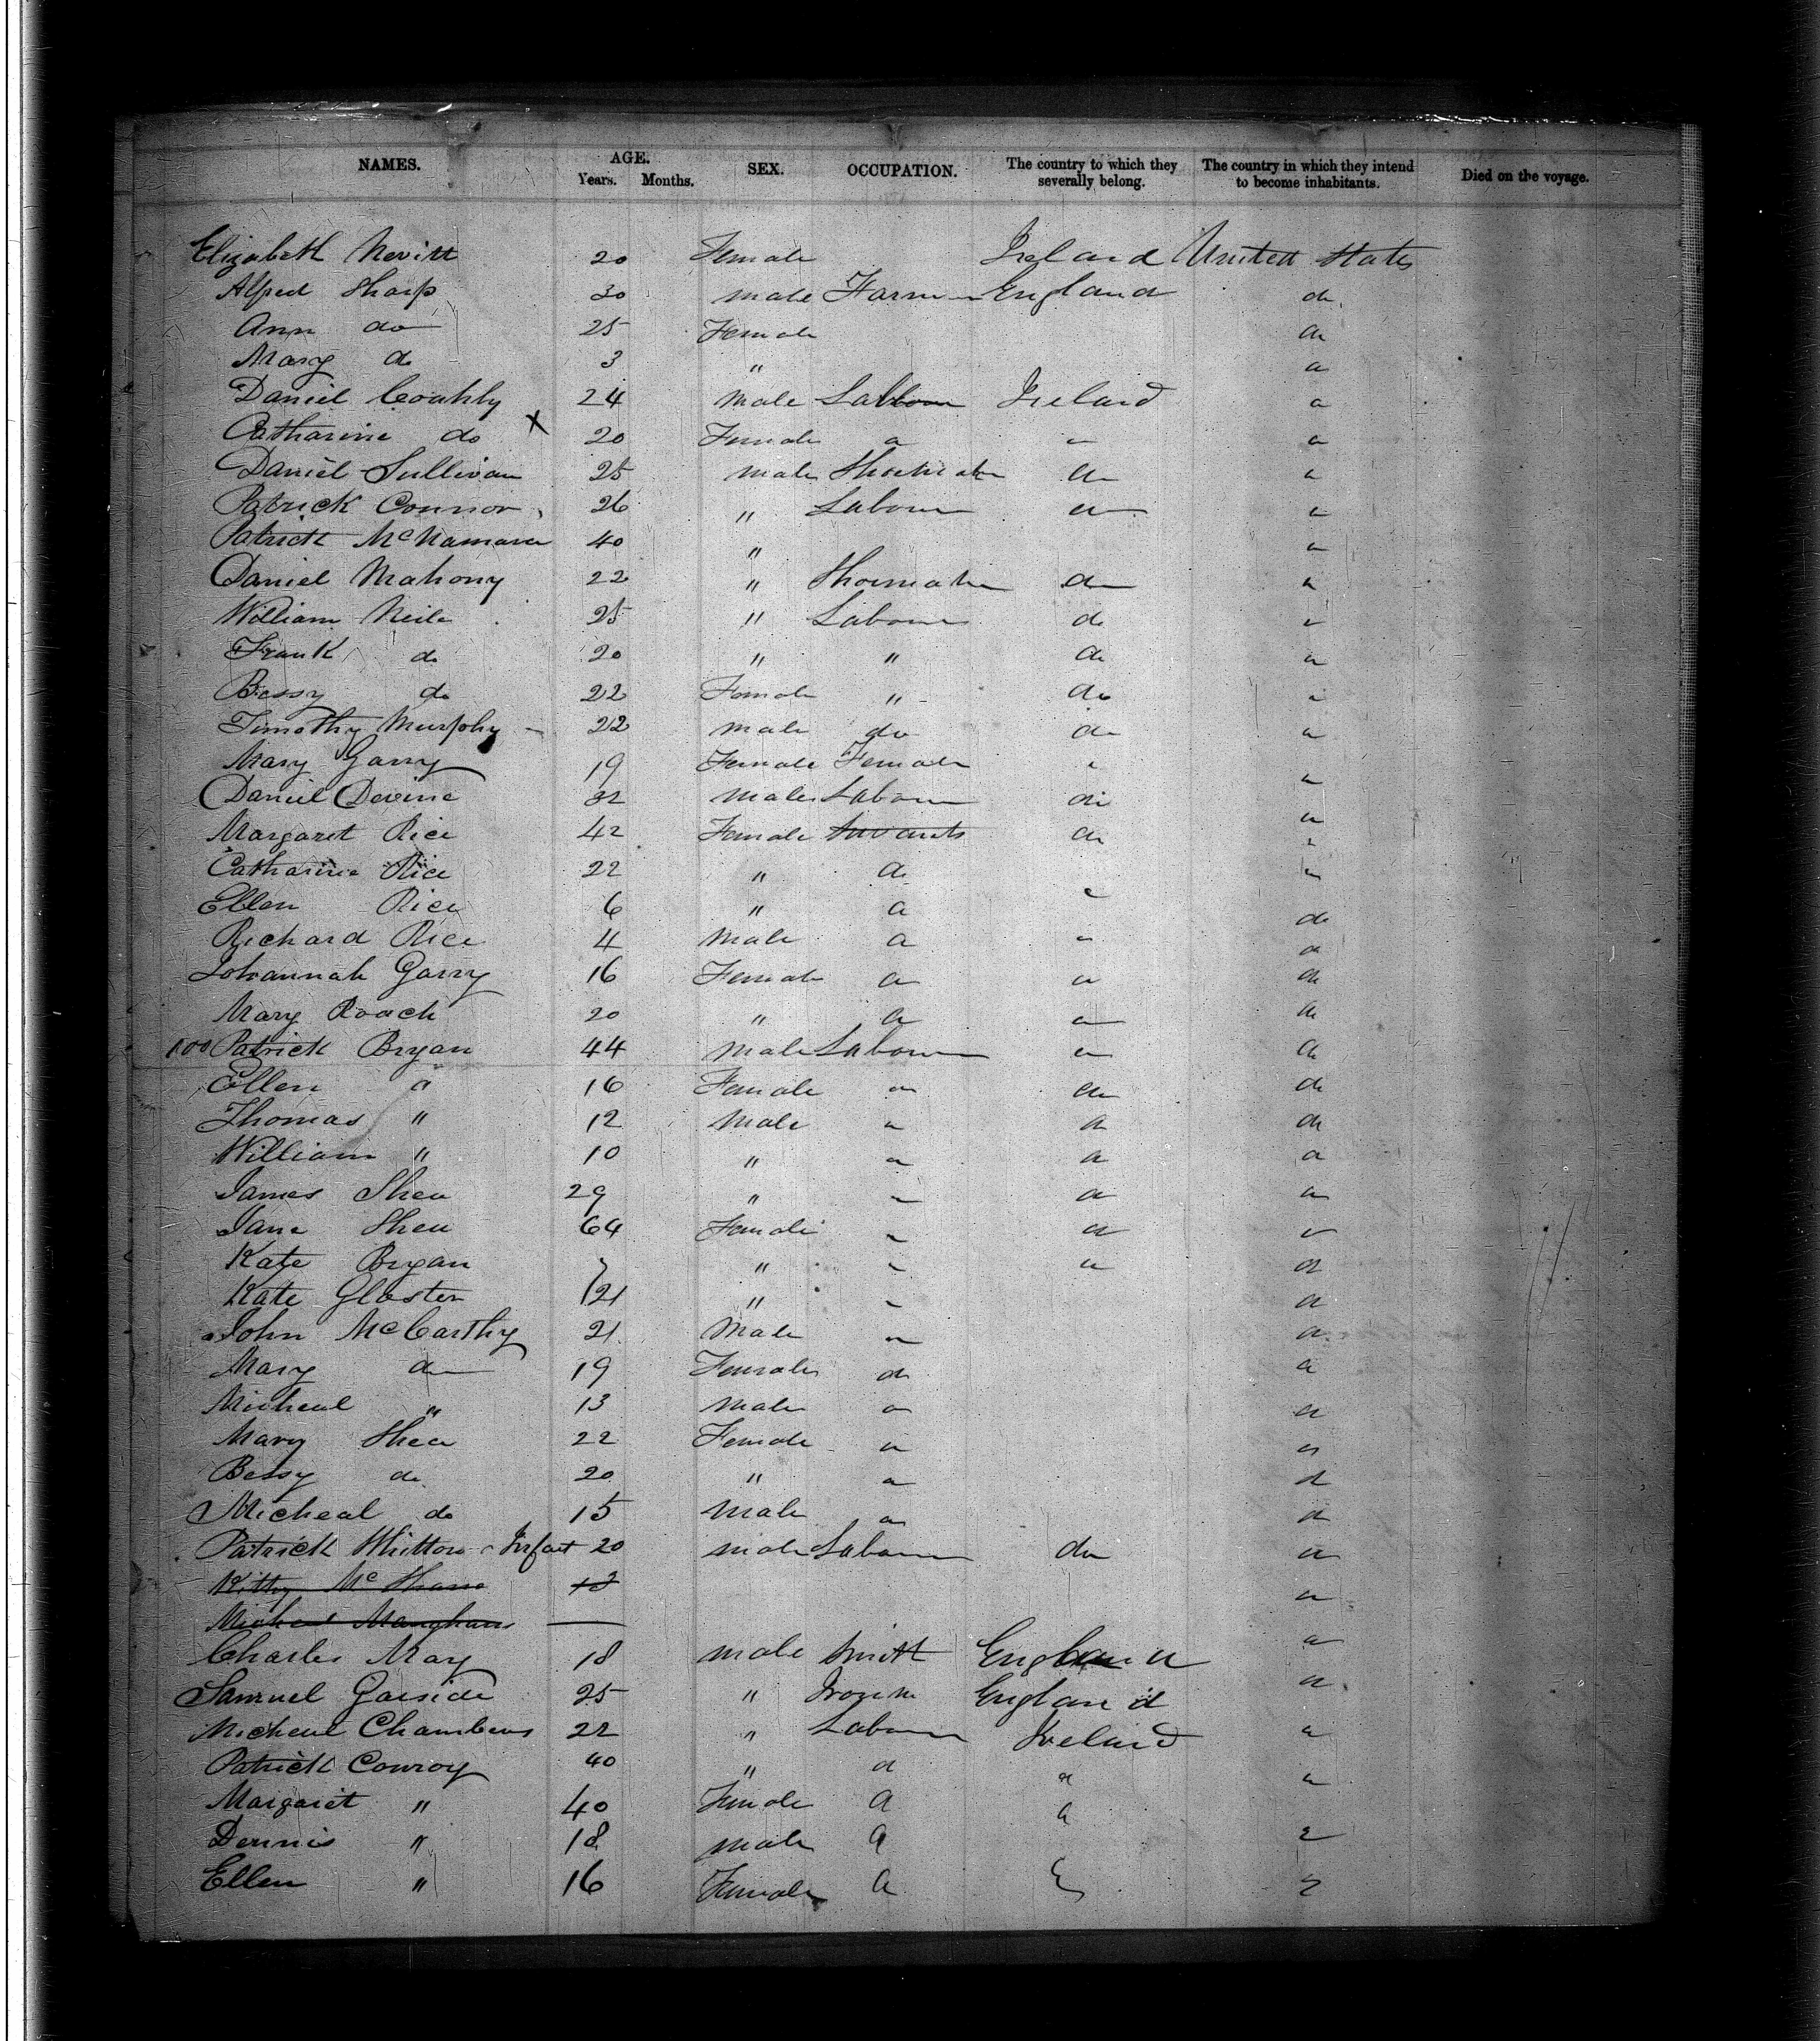 NAMES. AGE. Years. Months. SEX. OCCUPATION. The country to which they severally belong. The country in which they intend to become inhabitants. Died on the voyage.
Elizabeth Nevitt 20 Female Ireland United States
Alfred Sharp 30 male Farmer England do
Ann do 25 Female do
Mary do 3 " do
Daniel Coakly 24 male Labour Ireland do
Catharine do X 20 Female do do do
Daniel Sullivan 25 male Shoemaker do do
Patrick Connor 26 " Labour do do
Patrick McNamara 40 " do
Daniel Mahony 22 " Shoemaker do do
William Neile 25 " Labour do do
Frank do 20 " " do do
Bessy do 22 Female " do do
Timothy Murphy 22 male do do do
Mary Garry 19 Female Female do do
Daniel Devine 32 male Labour do do
Margaret Rice 42 Female Servants do do
Catharine Rice 22 " do do
Ellen Rice 6 " do do do
Richard Rice 4 male do do do
Johannah Garry 16 Female do do do
Mary Roach 20 " do do do
100 Patrick Bryan 44 male Labour do do
Ellen " 16 Female do do do
Thomas " 12 male do do do
William " 10 " do do do
James Shea 29 " do do do
Jane Shea 64 Female do do do
Kate Bryan 7 " do do do
Kate Gloster 21 " do do
John McCarthy 21 male do do
Mary do 19 Female do do
Micheal " 13 male do do
Mary Shea 22 Female do do
Bessy do 20 " do do
Micheal do 15 male do do
Patrick Whitton Infant 20 male Labour do do
Kitty Mc 13 do
Michael Manghan do
Charles May 18 male Smith England do
Samuel Garside 25 " England do
Micheal Chambers 22 " Labour Ireland do
Patrick Conroy 40 " do do do
Margaret " 40 Female do do
Dennis " 18 male do do
Ellen " 16 Female do do do